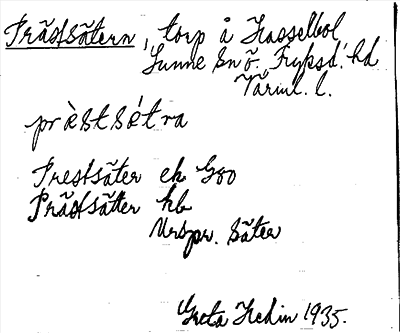 Prästsätern, torp å Hasselbol
Sunne sn ö. Fryksd. hd
Värml. l.
prɛ̀stsétra
Prestsäter ek G90
Prästsätter hb
Urspr. säter
Greta Hedin 1935.